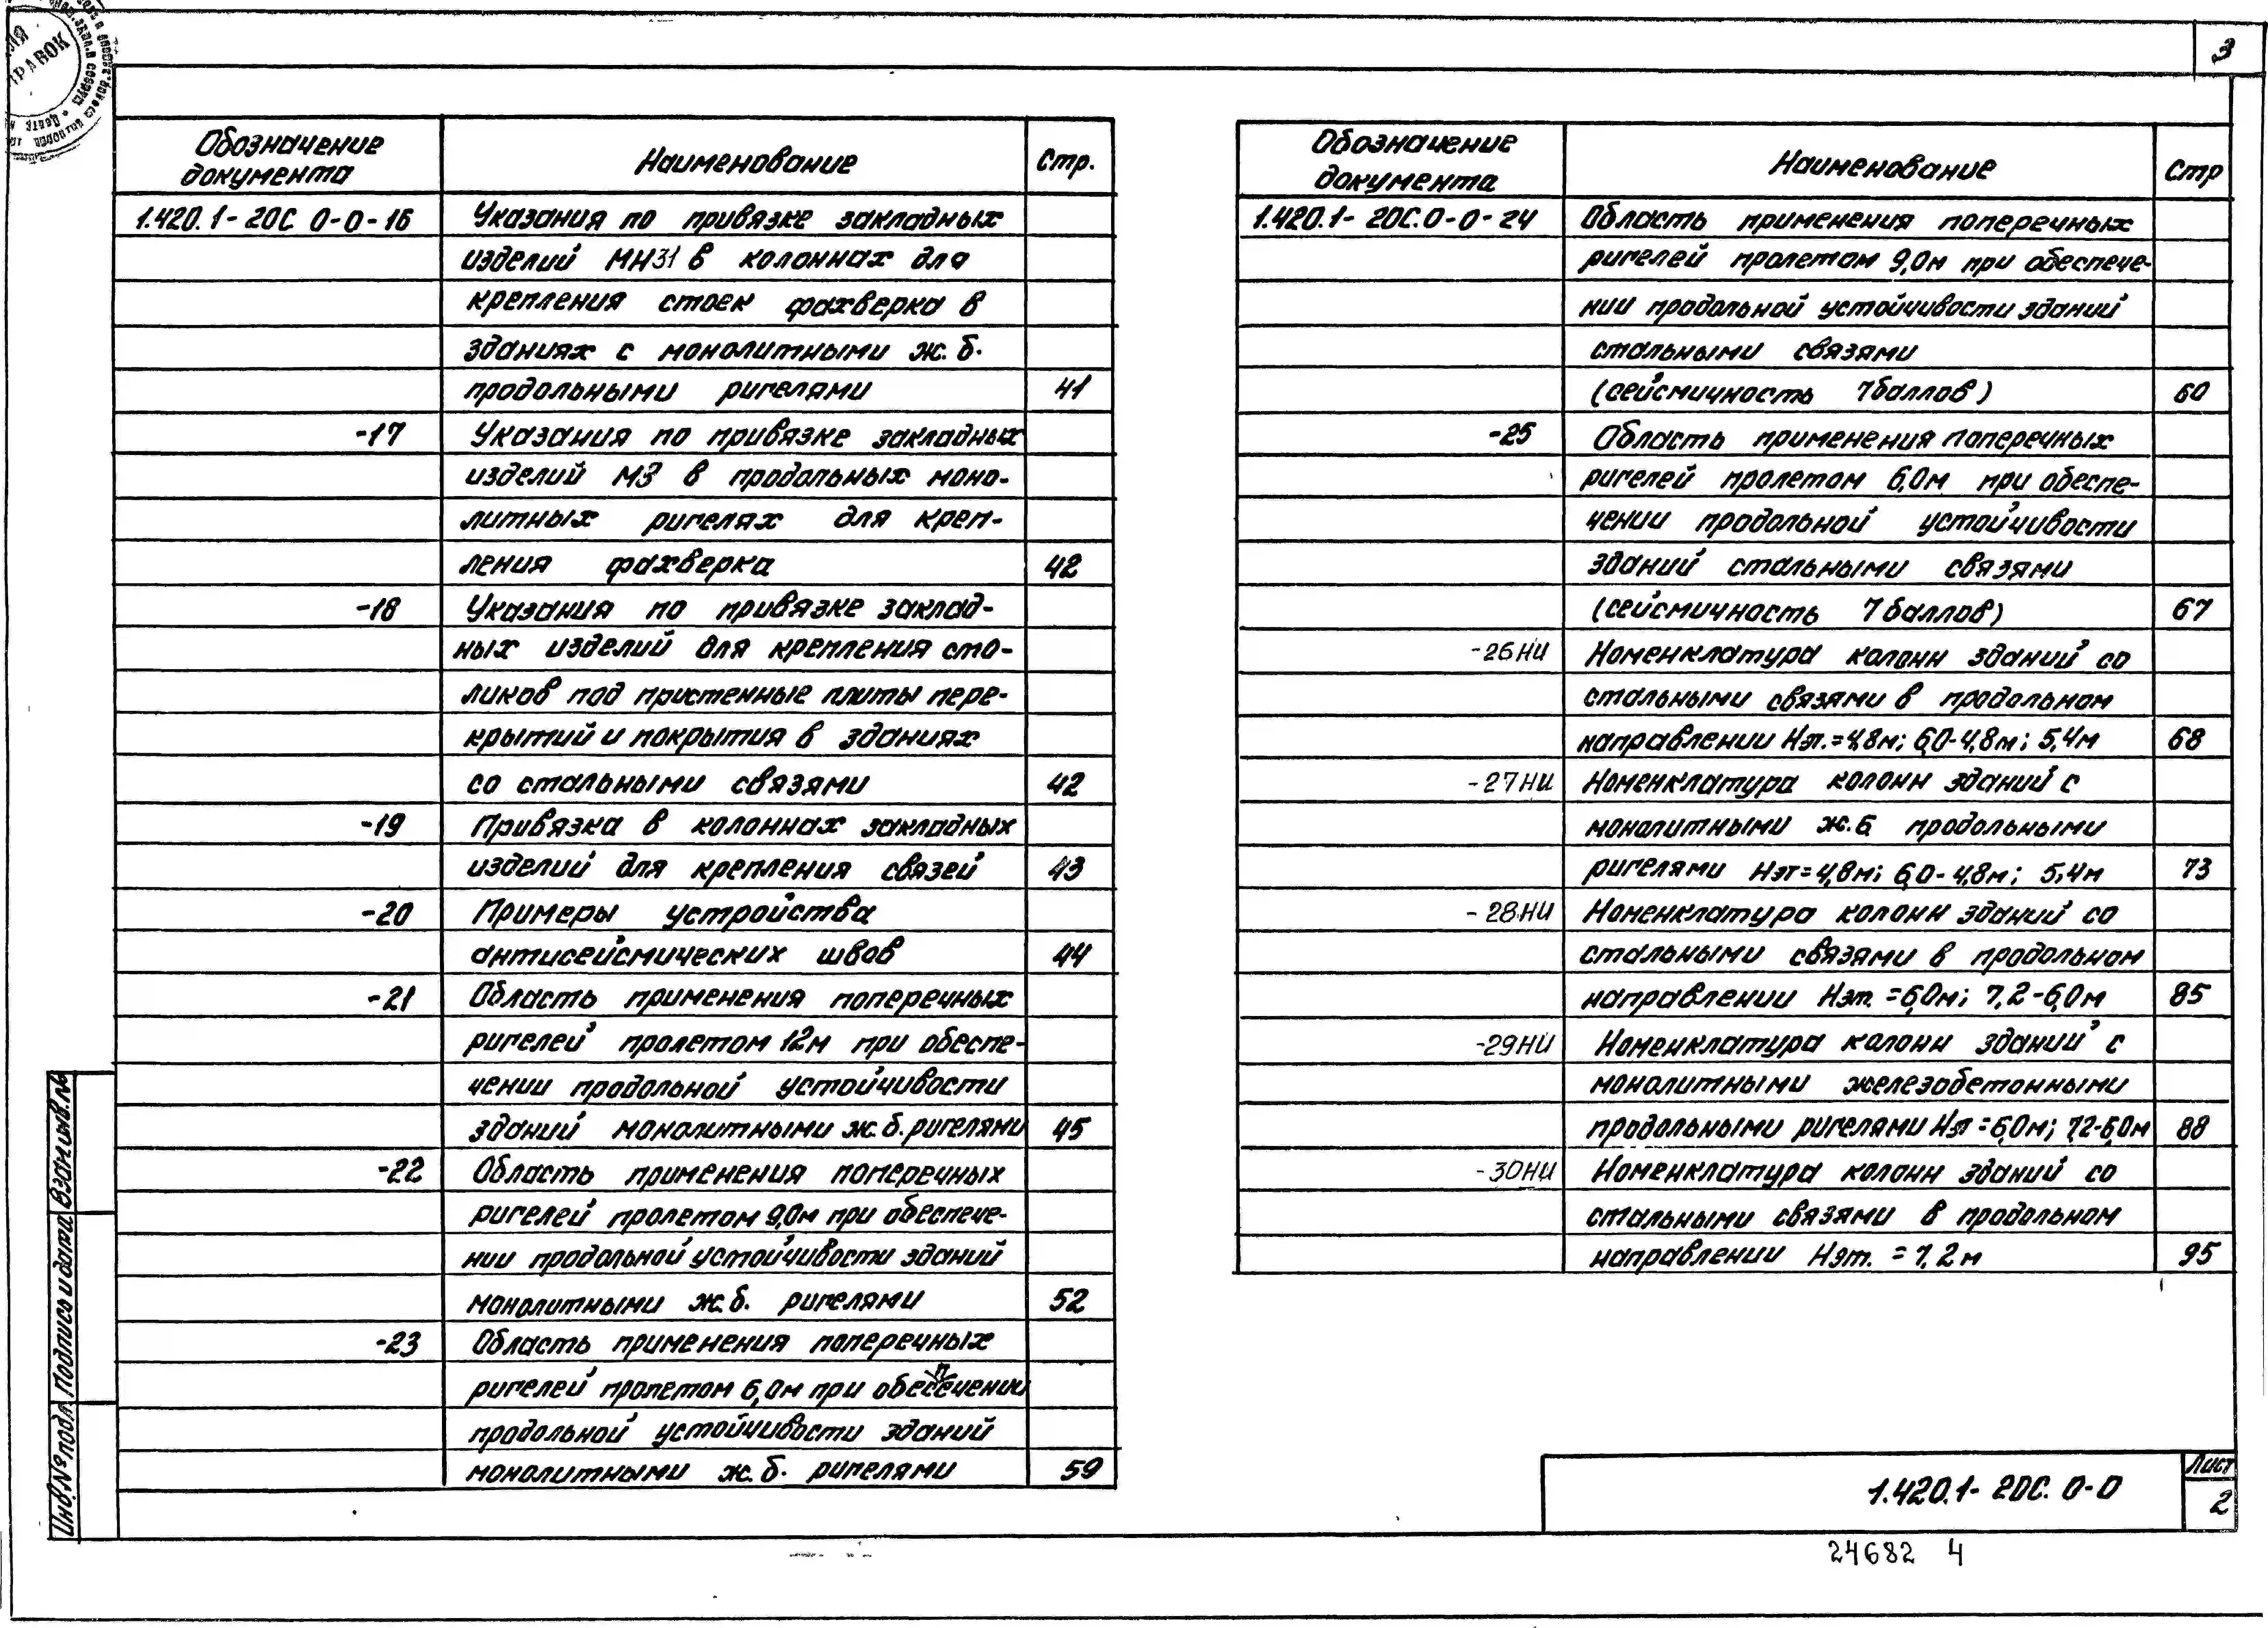 3
Обозначение документа
Наименование
Стр.
1.420.1-20С 0-0-16 Указания по привязке закладных
изделий МН31 в колоннах для
крепления стоек фахверка в
зданиях с монолитными ж.б.
продольными ригелями 41
-17 Указания по привязке закладных
изделий М3 в продольных моно-
литных ригелях для креп-
ления фахверка 42
-18 Указания по привязке заклад-
ных изделий для крепления сто-
ликов под пристенные плиты пере-
крытий и покрытия в зданиях
со стальными связями 42
-19 Привязка в колоннах закладных
изделий для крепления связей 43
-20 Примеры устройства
антисейсмических швов 44
-21 Область применения поперечных
ригелей пролетом 12м при обеспе-
чении продольной устойчивости
зданий монолитными ж.б. ригелями 45
-22 Область применения поперечных
ригелей пролетом 9,0м при обеспече-
нии продольной устойчивости зданий
монолитными ж.б. ригелями 52
-23 Область применения поперечных
ригелей пролетом 6,0м при обеспечении
продольной устойчивости зданий
монолитными ж.б. ригелями 59
Обозначение документа
Наименование
Стр
1.420.1-20С.0-0-24 Область применения поперечных
ригелей пролетом 9,0м при обеспече-
нии продольной устойчивости зданий
стальными связями
(сейсмичность 7 баллов) 60
-25 Область применения поперечных
ригелей пролетом 6,0м при обеспе-
чении продольной устойчивости
зданий стальными связями
(сейсмичность 7 баллов) 67
-26НИ Номенклатура колонн зданий со
стальными связями в продольном
направлении Нэт.=4,8м; 6,0-4,8м; 5,4м 68
-27НИ Номенклатура колонн зданий с
монолитными ж.б. продольными
ригелями Нэт=4,8м; 6,0-4,8м; 5,4м 73
-28НИ Номенклатура колонн зданий со
стальными связями в продольном
направлении Нэт.=6,0м; 7,2-6,0м 85
-29НИ Номенклатура колонн зданий с
монолитными железобетонными
продольными ригелями Нэт=6,0м; 7,2-6,0м 88
-30НИ Номенклатура колонн зданий со
стальными связями в продольном
направлении Нэт.=7,2м 95
Инв.№подл. Подпись и дата Взам.инв.№
1.420.1-20С.0-0
Лист
2
24682 4